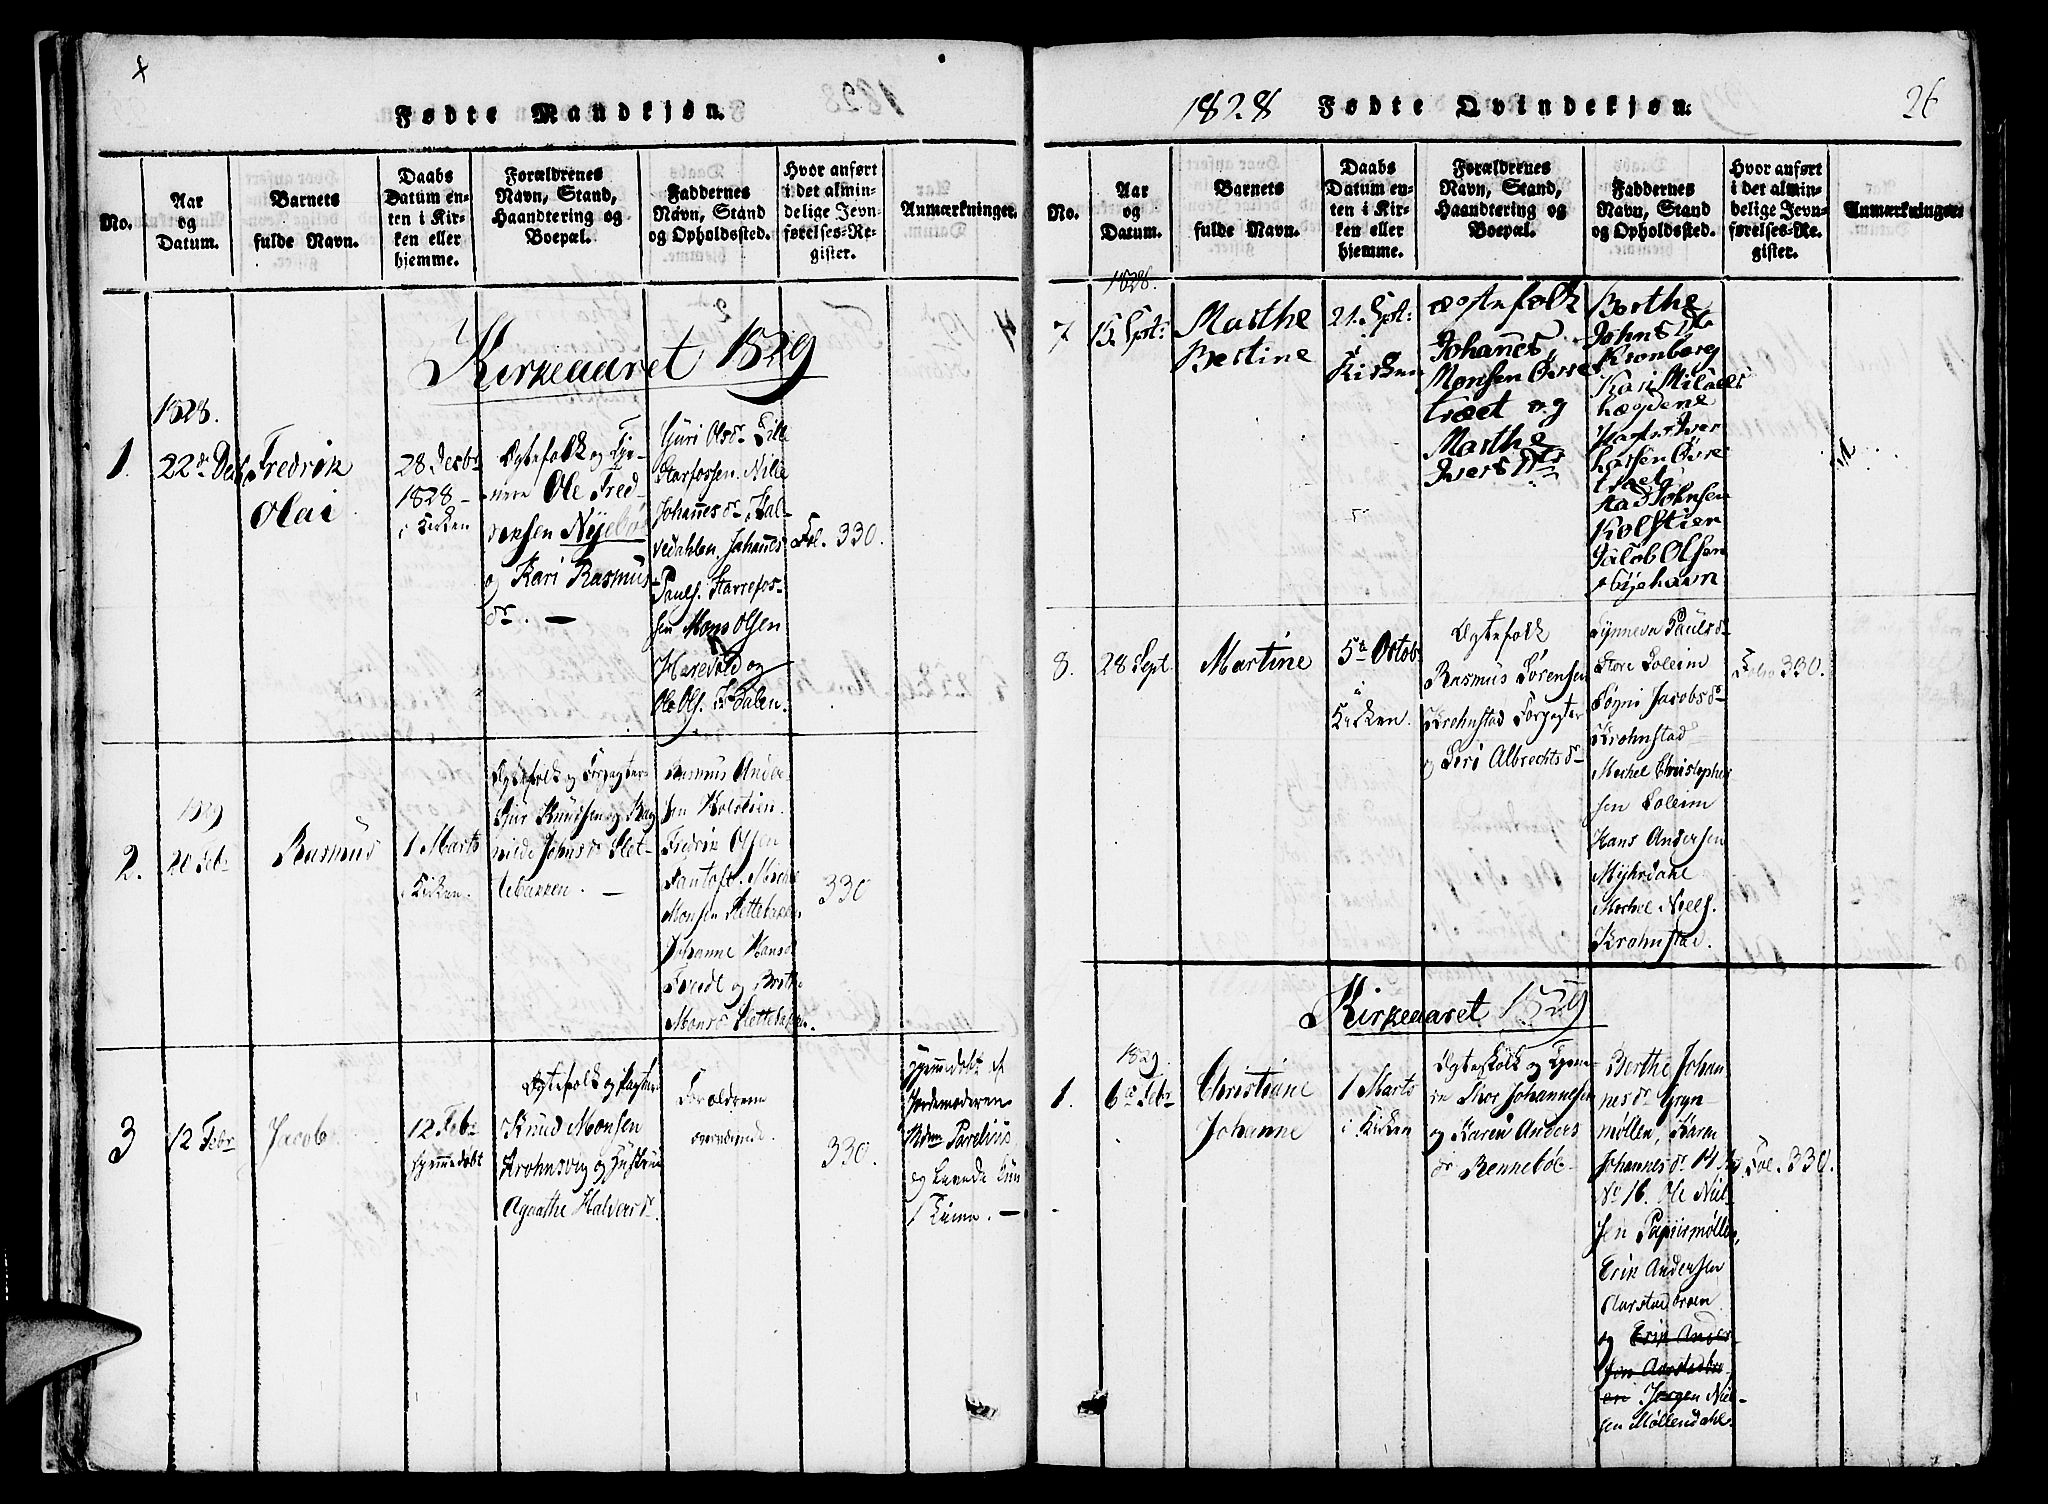 Fødte Mandkjøn.
No.
Aar
og
Datum.
Barnets
fulde Navn.
Daabs
Datum en-
ten i Kir-
ken eller
hjemme.
Forældrenes
Navn, Stand,
Haandtering og
Boepæl.
Faddernes
Navn, Stand
og Opholdssted.
Hvor anført
i det almin-
delige Jevn-
førelses-Re-
gister.
Anmærkninger.
Kirkeaaret 1829
1828.
1.
22de
Fredrik
Olai
28 Decbr
1828 -
i Kirken
Ægtefolk og Tje-
nere Ole Fred-
riksen Nyebøe
og Kari Rasmus
dr. —
Guri Olsdr Lille
Starfossen. Nille
Johannesdr Hal-
vedahlen. Johannes
Pauls. Starrefos-
sen Mons Olsen
Harevold og
Ole Ols.
Fol. 330.
2.
1829
20 Febr
Rasmus
1 Marts
i Kirken.
Ægtefolk og Forpagter
Siur Knudsen og Rag
nilde Johnsdr Slet-
tebakken. —
Rasmus Ander
sen Kolstien
Fredrik Olsen
Fantoft. Michel
Monsen Slettebakken
Johanne Hansdr
Tvedt og Brithe
Monsdr Slettebakken.
330
3
12 Febr
Jacob
12 Febr
hjemmedøbt
Ægtefolk og
Knud Monsen
Krohnsvig og Hustrue
Agathe Halvorsdr.
Forældrene
330.
Hjemmedøbt af
Jordemoderen
Mdm Parelius
og levede kun
1 Time. —
1828 Fødte Qvindekjøn.
26
No.
Aar
og
Datum.
Barnets
fulde Navn.
Daabs
Datum en-
ten i Kir-
ken eller
hjemme.
Forældrenes
Navn, Stand,
Haandtering og
Boepæl.
Faddernes
Navn, Stand
og Opholdssted.
Hvor anført
i det almin-
delige Jevn-
førelses-Re-
gister.
Anmærkninger.
1828.
7
15 Sept:
Marthe
Bertine
21. Spt:
i
Kirken
ægtefolk
Johanes
Monsen Øvre
træet og
Marthe
Ivers Dtr
Berthe
Johns Dtr
Kronborg
Kari
høgdene
Iver
Larsen Øvre
træet
Johnsen
Kolstien
Jacob Olsen
8.
28 Sept.
Martine
5te Octob
i
Kirken.
Ægtefolk
Rasmus Sørensen
Krohnstad Forpagter
og Albrechtsdr
Synneva Paulsdr
Store Soleim
Søgni Jacobsdr
Krohnstad
Michel Christopher
sen Soleim
Hans Andersen
Myhrdahl
Michel Niels.
Krohnstad.
Folio 330.
Kirkeaaret 1829
1829.
1.
6te Febr
Christiane
Johanne
1 Marts
i Kirken
Ægtefolk og Tjene
re Johannesen
og Karen Anders
dr Rennebøe.
Berthe Johan
nesdr Gryn-
møllen, Karen
Johannesdr
No 16. Ole Niel
sen Papiirmøllen,
Erik Andersen
Aarstadbroen
og Erik Ander-
sen Aarstadbro
en. Jørgen Niel-
sen Møllendahl.
Fol. 330.